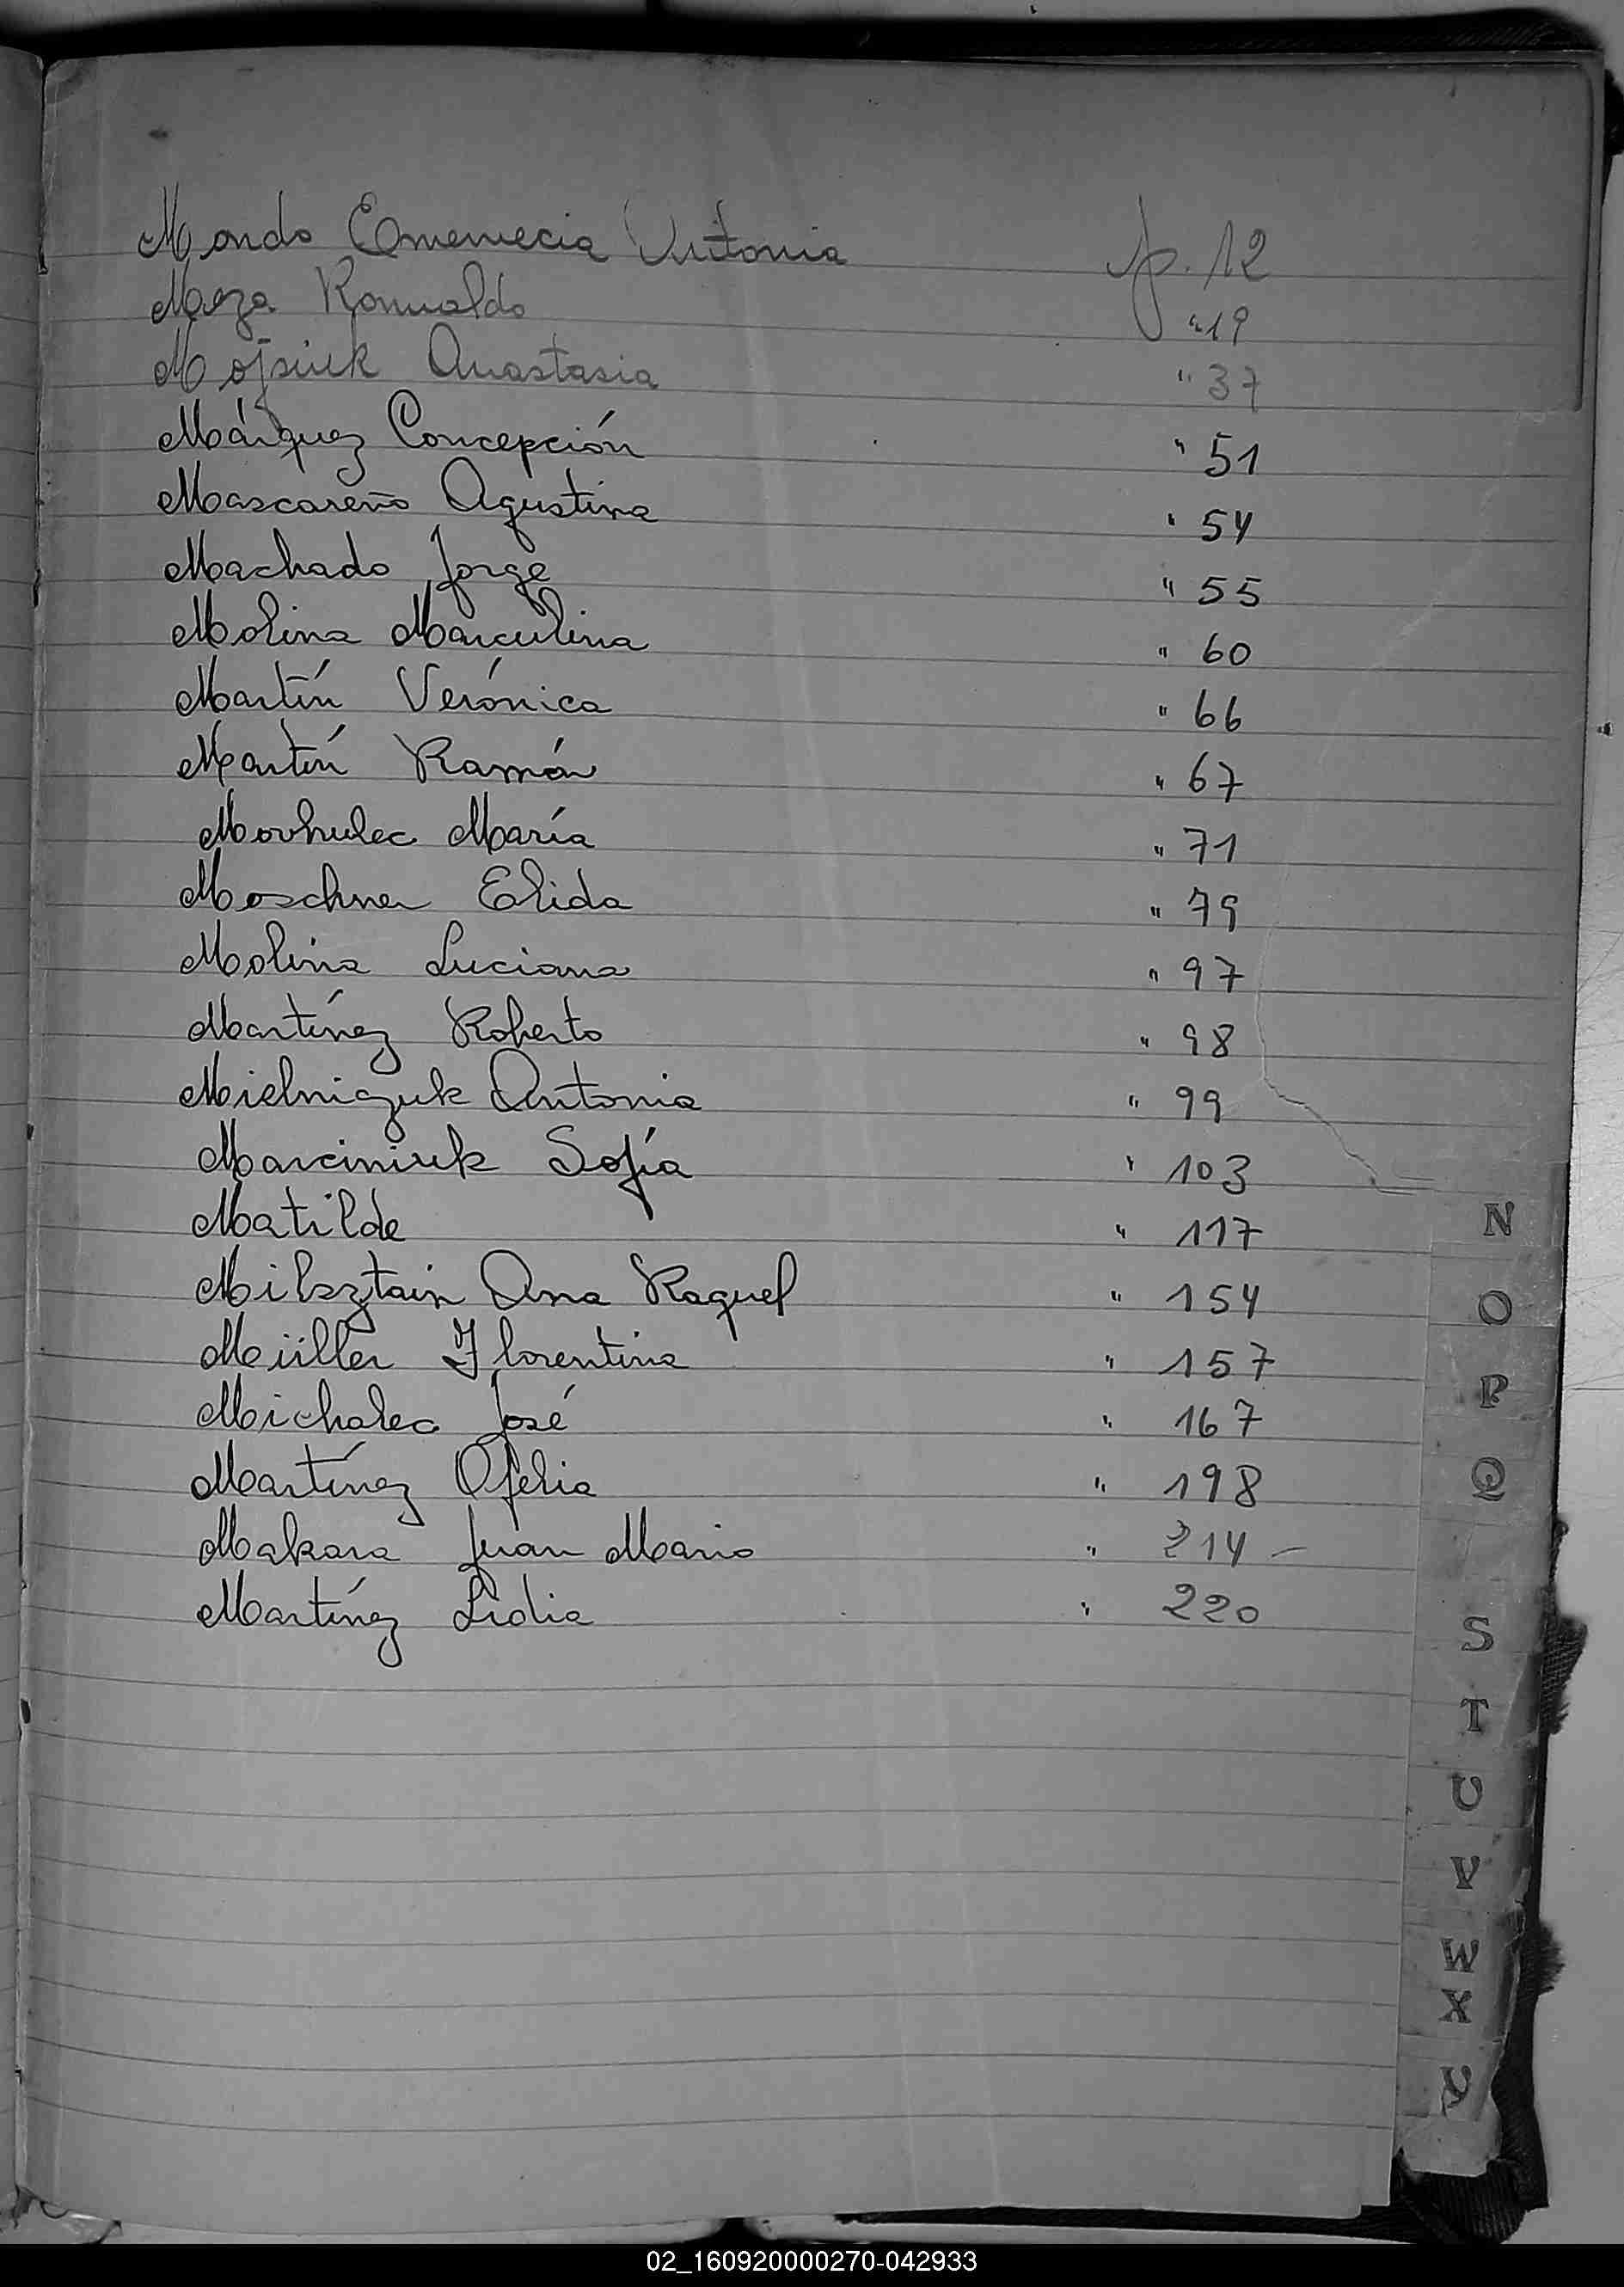 Mondo Emerencia Antonia p. 12
Meza Romualdo " 19
Mojsiuk Anastasia " 37
Márquez Concepción " 51
Mascareño Agustina " 54
Machado Jorge " 55
Molina Marculina " 60
Martín Verónica " 66
Martín Ramón " 67
María " 71
Moschner Elida " 79
Molina Luciana " 97
Martínez Roberto " 98
Mielniczuk Antonia " 99
Marciniuk Sofía " 103
Matilde " 117
Milsztain Ana Raquel " 154
Müller Florentina " 157
Michalec José " 167
Martínez Ofelia " 198
Makara Juan Mario " 214 -
Martínez Lidia " 220
N
O
P
Q
S
T
U
V
W
X
Y
02_160920000270-042933